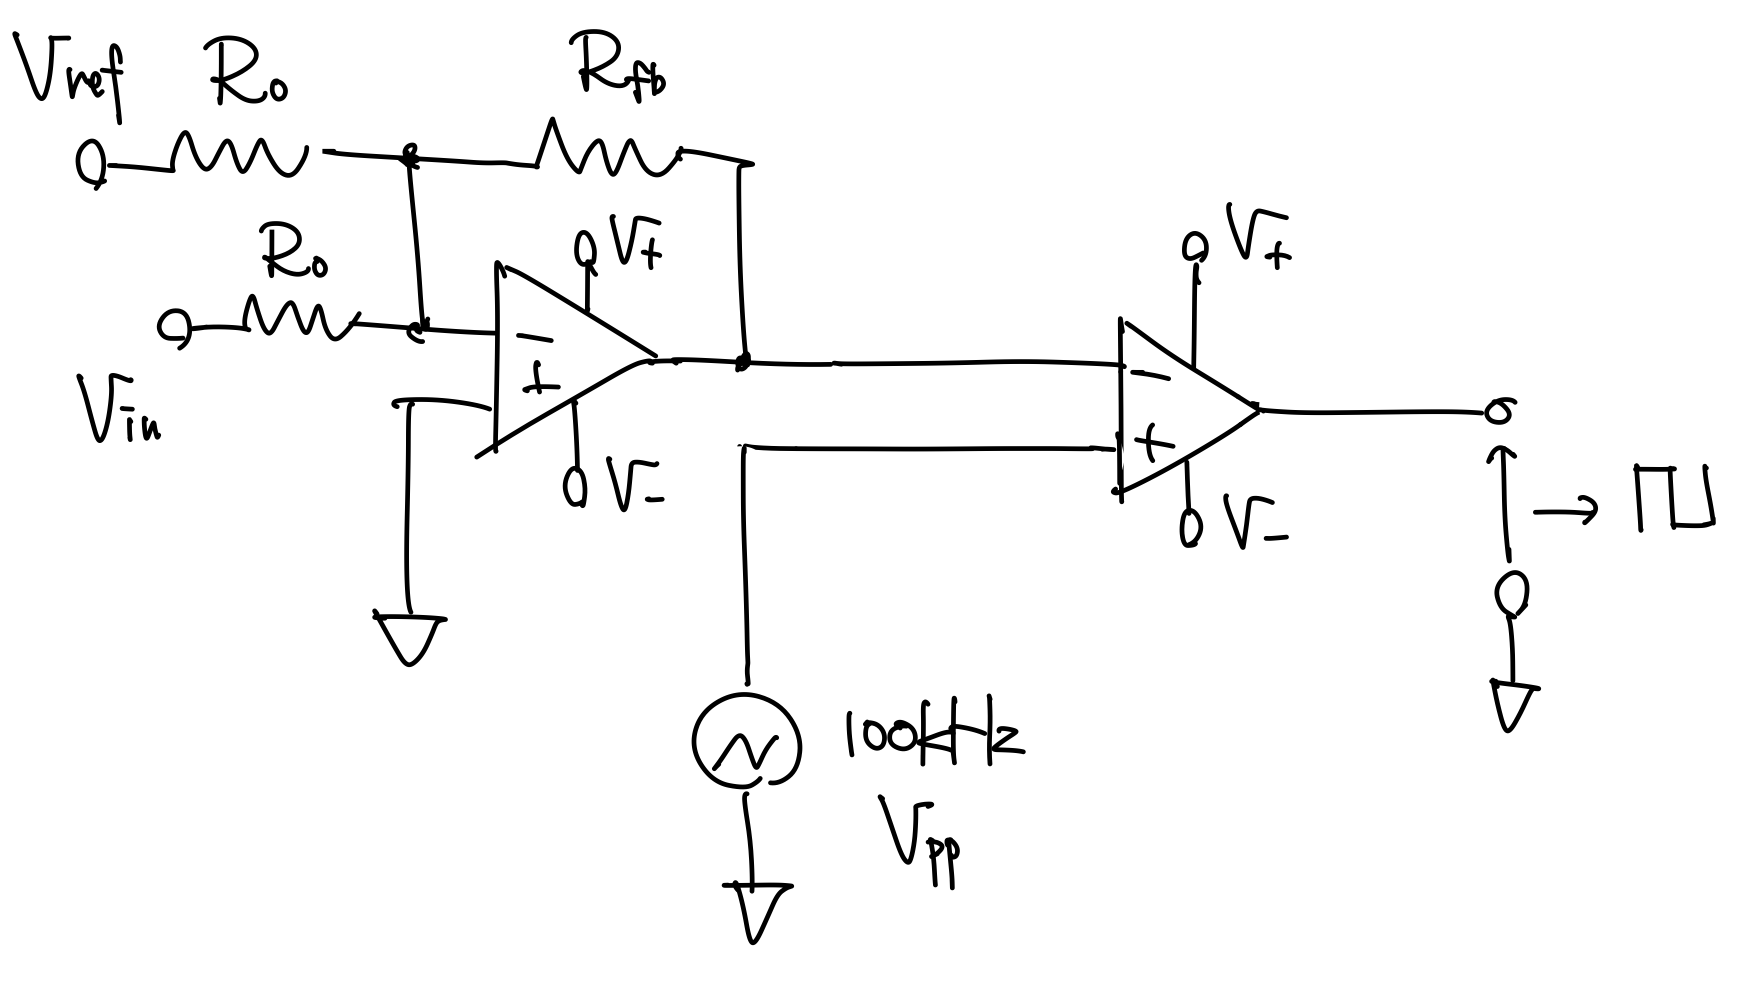 Vref
R0
Rfb
R0
V+
V+
−
+
Vin
−
+
V−
V−
100kHz
Vpp